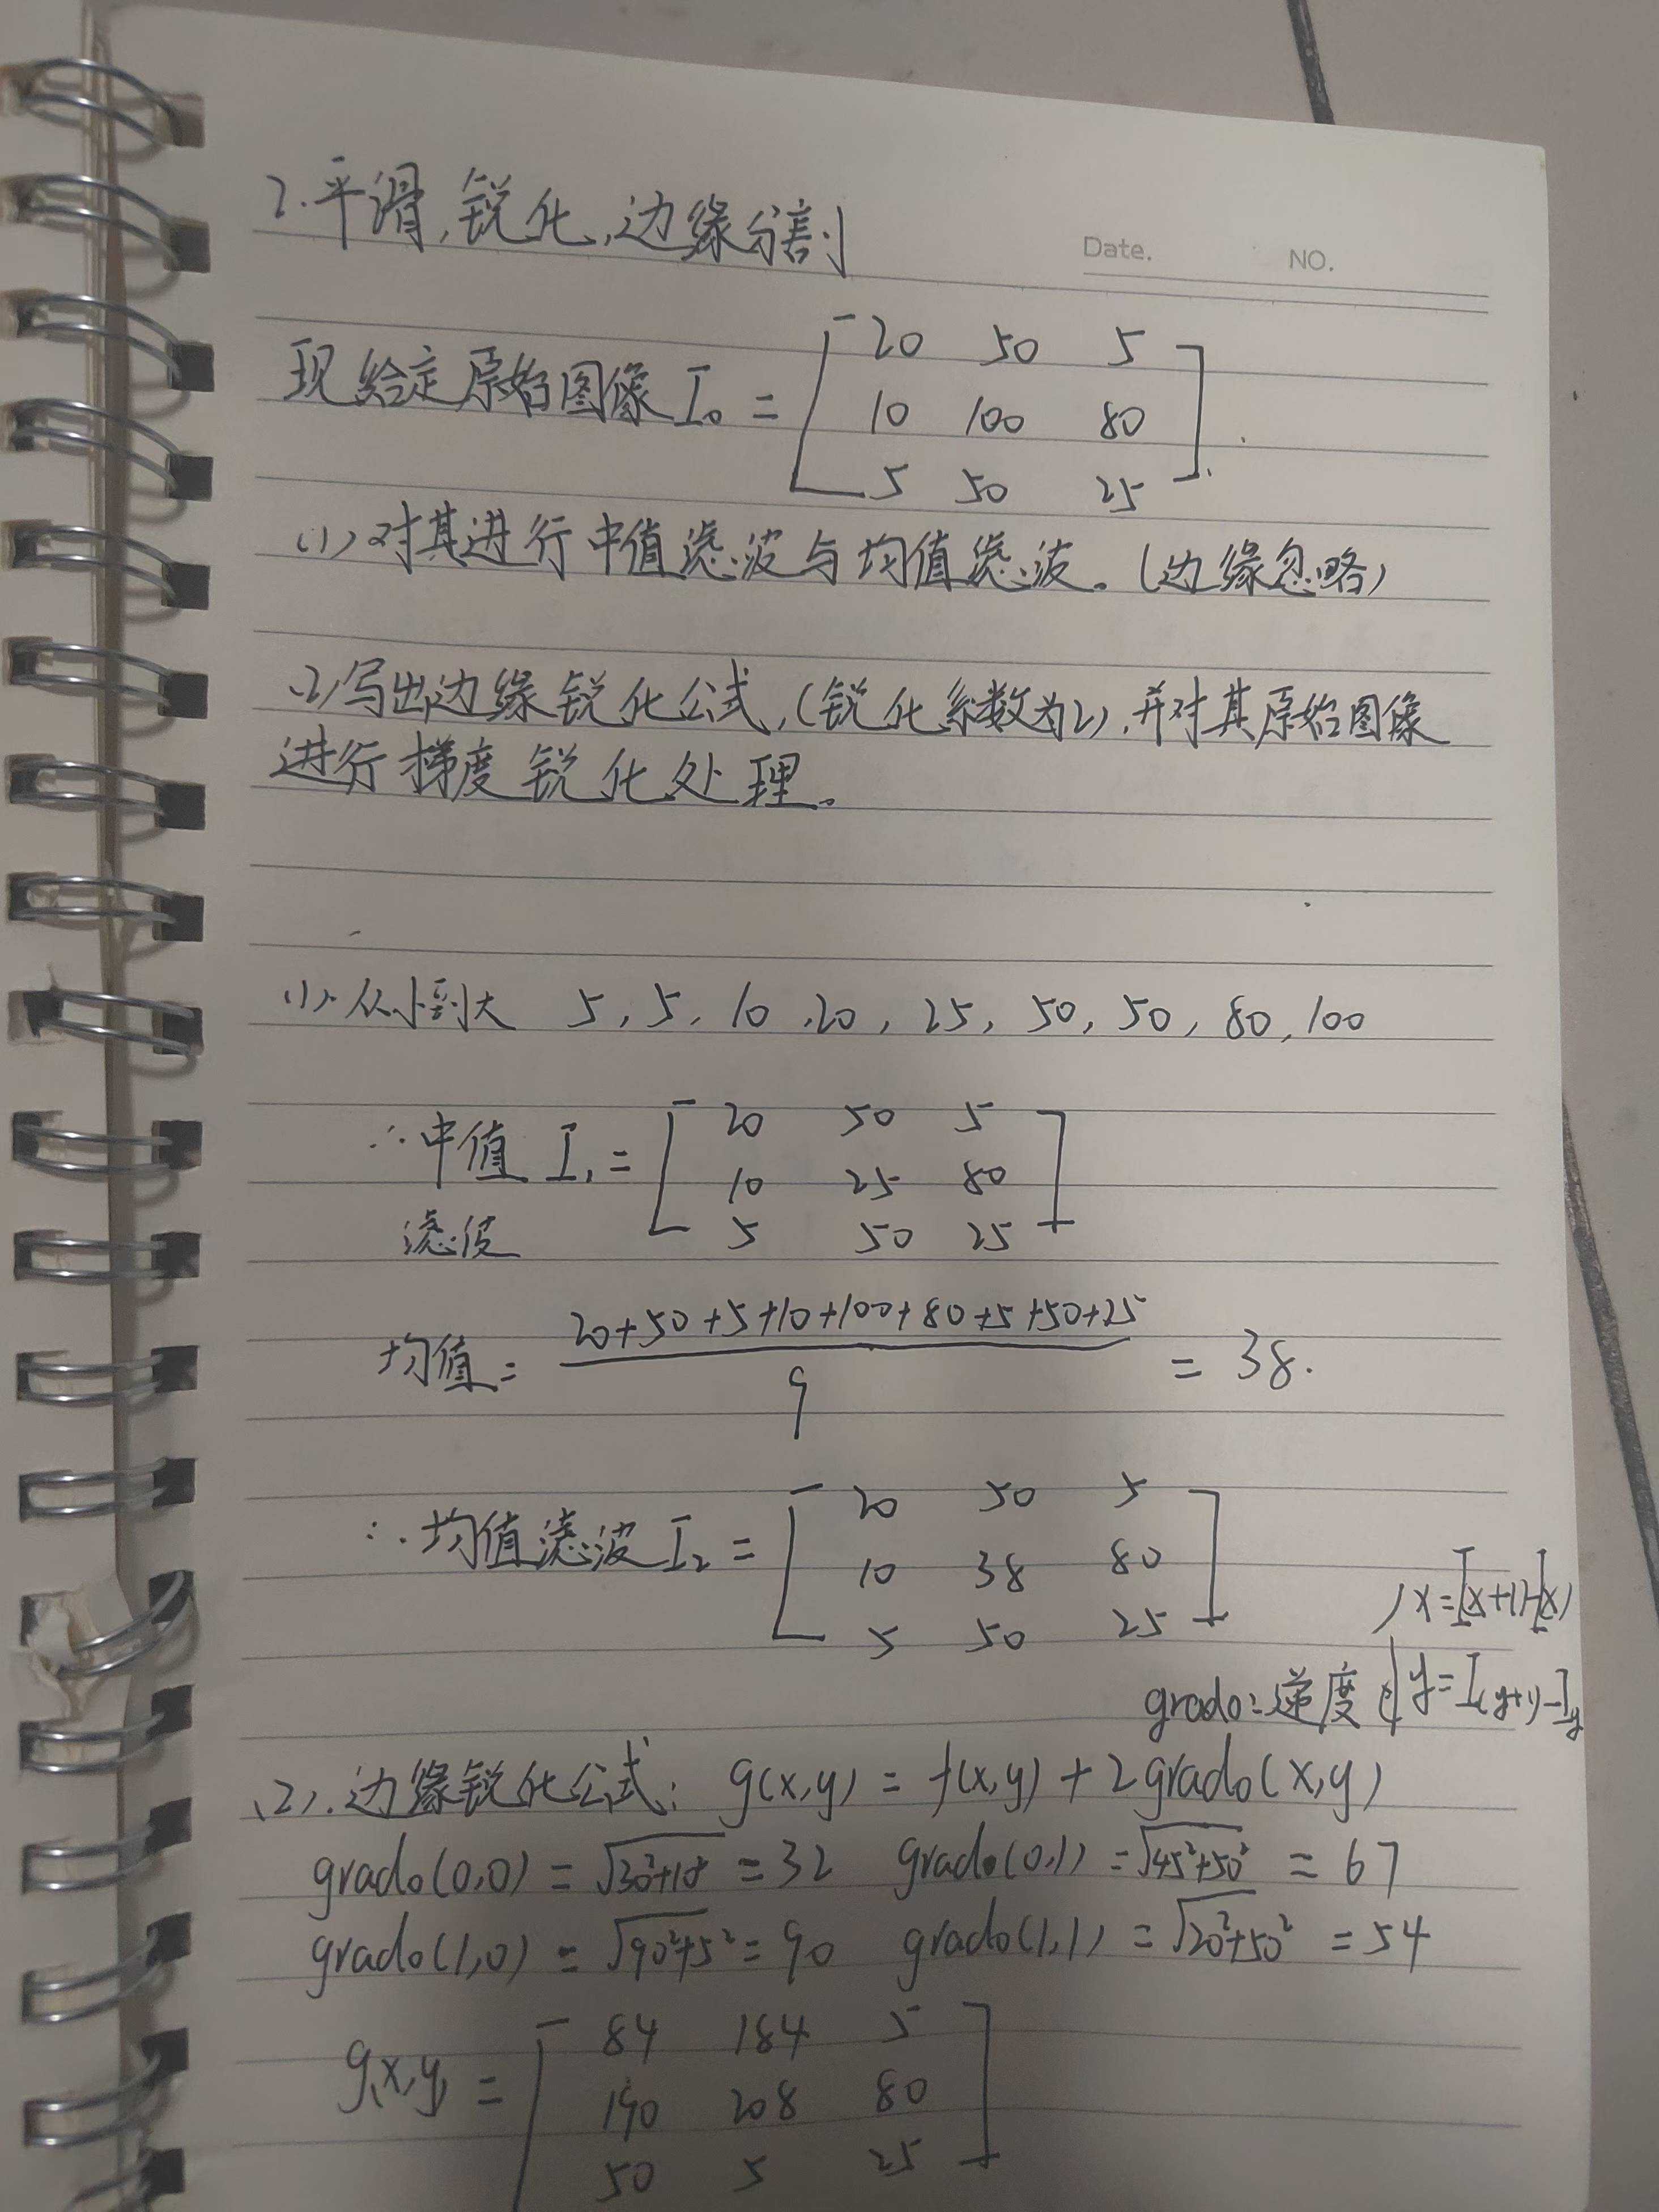 2.平滑,锐化,边缘分割
Date. NO.
现给定原始图像 I₀ = [ 20 50 5
10 100 80
5 50 25 ].
(1)对其进行中值滤波与均值滤波。(边缘忽略)
(2)写出边缘锐化公式,(锐化系数为2),并对其原始图像
进行梯度锐化处理。
(1)从小到大 5, 5, 10, 20, 25, 50, 50, 80, 100
∴中值 I₁ = [ 20 50 5
10 25 80
滤波 5 50 25 ]
均值 = (20+50+5+10+100+80+5+50+25)/9 = 38.
∴均值滤波 I₂ = [ 20 50 5
10 38 80
5 50 25 ]
x=I(x+1)-I(x)
grado:递度 y=I(y+1)-Iy
(2).边缘锐化公式: g(x,y) = f(x,y) + 2grado(x,y)
grado(0,0) = √30²+10² = 32 grado(0,1) = √45²+50² = 67
grado(1,0) = √90²+5² = 90 grado(1,1) = √20²+50² = 54
g(x,y) = [ 84 184 5
190 208 80
50 5 25 ]